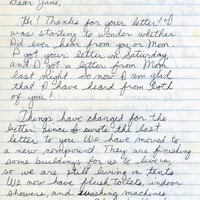 Dear Jane,
Hi! Thanks for your letter! I
was starting to wonder whether
I'd ever hear from you or Mom.
I got your letter on Saturday
and I got a letter from Mom
last night. So now I am glad
that I have heard from both
of you!
Things have changed for the
better since I wrote the last
letter to you. We have moved to
a new compound. They are finishing
some buildings for us to live in,
so we are still living in tents.
We now have flush toilets, indoor
showers, and washing machines